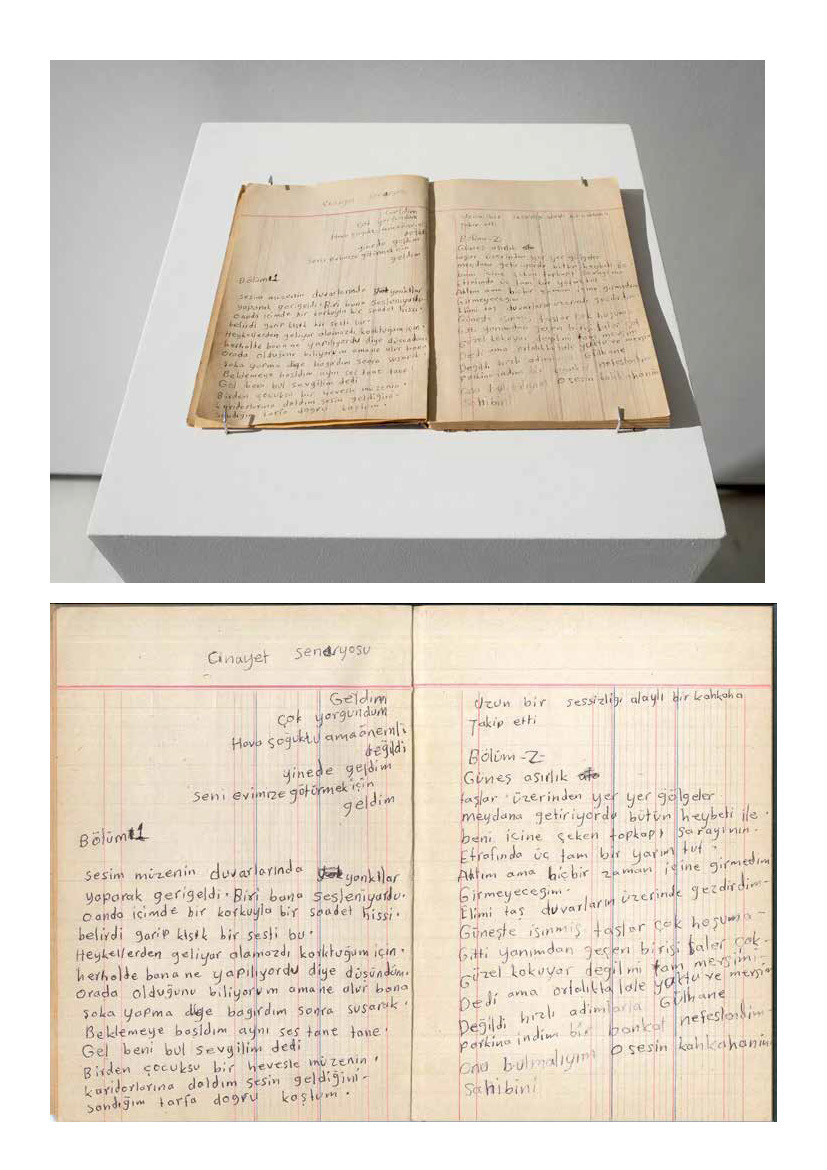 Cinayet senaryosu
Geldim
Çok yorgundum
Hava soğuktu ama önemli
değildi
yinede geldim
seni evimize götürmek için
geldim
Bölüm 1
sesim müzenin duvarlarında yankılar
yaparak gerigeldi. Biri bana Sesleniyordu.
O anda içimde bir korkuyla bir saadet hissi.
belirdi garip kısık bir sesti bu.
Heykellerden geliyor olamazdı korktuğum için.
herholde bana ne yapılıyordu diye düsündüm.
Orada olduğunu biliyorum ama ne olur bana
şaka yapma diye bagırdım sonra susarak.
Beklemeye başldım aynı ses tane tane.
Gel beni bul sevgilim dedi
Birden çocuksu bir hevesle müzenin.
karidorlarına daldım sesin geldiğini-
sandığım tarfa dogru koştum.
Uzun bir sessizliği alaylı bir kahkaha
Takip etti
Bölüm -2-
Güneş asırlık
taşlar üzerinden yer yer gölgeler
meydana getiriyordu bütün heybeti ile.
beni içine çeken topkapı sarayının.
Etrafında üç tam bir yarım tur.
Attım ama hiçbir zaman içine girmedim
Girmeyeceğim.
Elimi taş duvarların üzerinde gezdirdim-
Güneşte ısınmış taşlar çok hoşuma-
Gitti yanımdan geçen birisi laler çok-
Güzel kokuyar değilmi tam mevsimi-
Dedi ama ortalıkta lale yoktu ve mevsim
Değildi hızlı adımlarla Gülhane
parkına indim bir bankat nefeslendim-
Onu bulmalıyım o sesin kahkahanın
Sahibini